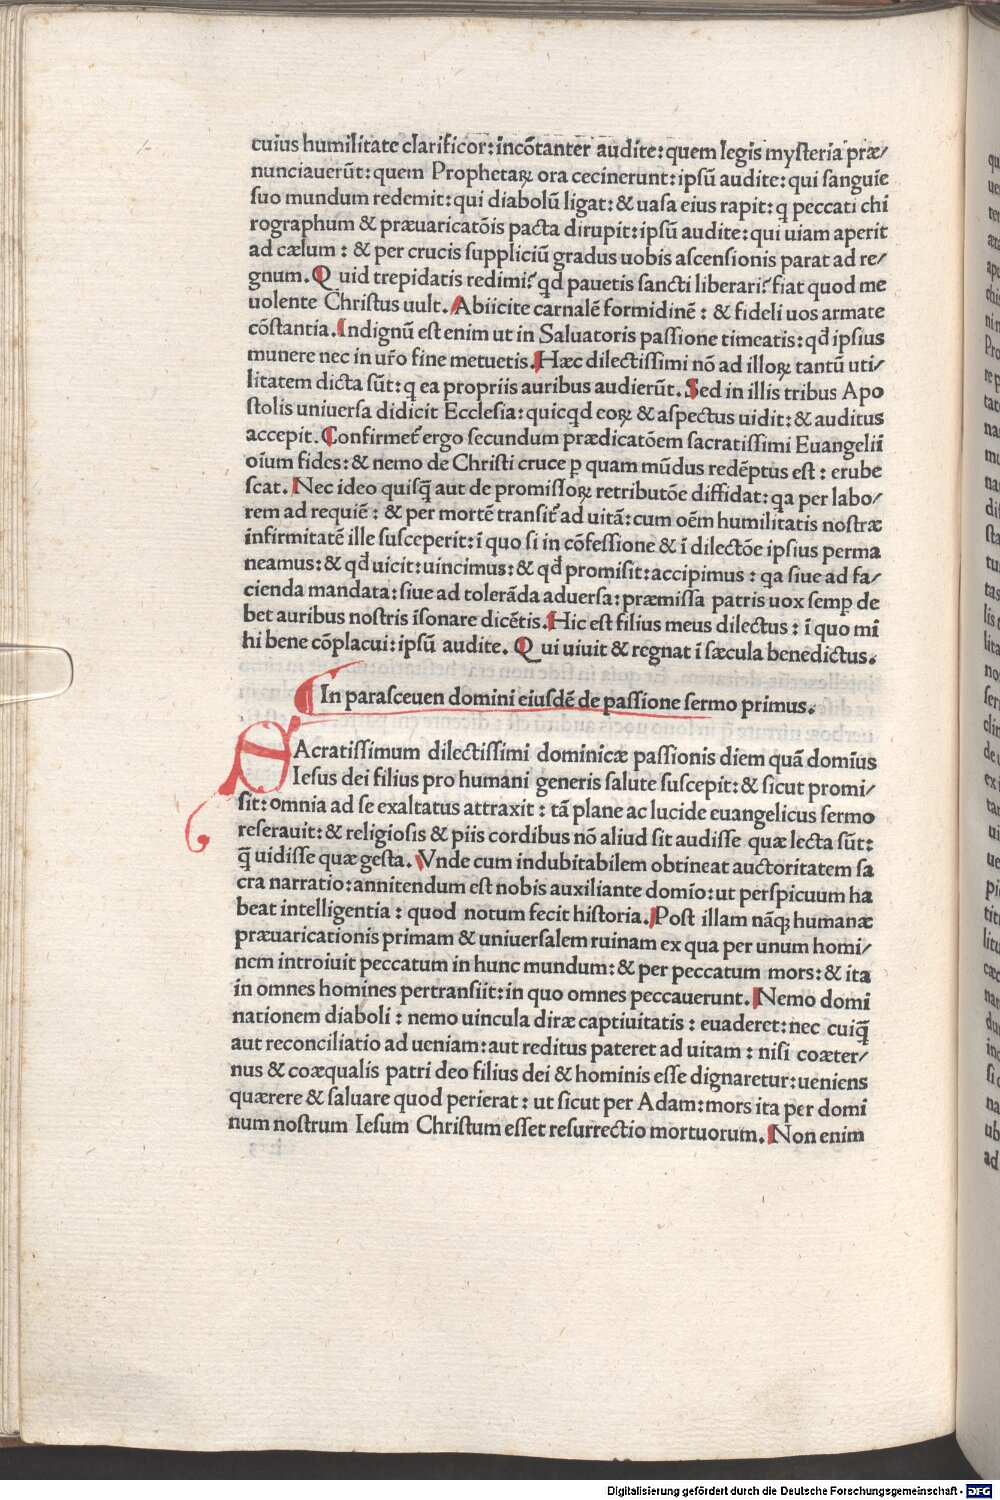 cuius humilitate clarificor: incōtanter audite: quem legis mysteria præ/
nunciauerūt: quem Prophetaꝝ ora cecinerunt: ipsū audite: qui sanguīe
suo mundum redemit: qui diabolū ligat: & uasa eius rapit: q peccati chi
rographum & præuaricatōis pacta dirupit: ipsū audite: qui uiam aperit
ad cælum: & per crucis suppliciū gradus uobis ascensionis parat ad re/
gnum. Quid trepidatis redimi? qd pauetis sancti liberari? fiat quod me
uolente Christus uult. Abiicite carnalē formidinē: & fideli uos armate
cōstantia. Indignū est enim ut in Saluatoris passione timeatis: qd ipsius
munere nec in ur̄o fine metuetis. Hæc dilectissimi nō ad illoꝝ tantū uti/
litatem dicta sūt: q ea propriis auribus audierūt. Sed in illis tribus Apo
stolis uniuersa didicit Ecclesia: quicqd eoꝝ & aspectus uidit: & auditus
accepit. Confirmet̄ ergo secundum prædicatōem sacratissimi Euangelii
oīum fides: & nemo de Christi cruce ꝑ quam mūdus redēptus est: erube
scat. Nec ideo quisq̄ aut de promissoꝝ retributōe diffidat: qa per labo/
rem ad requiē: & per mortē transit̄ ad uitā: cum oēm humilitatis nostræ
infirmitatē ille susceperit: ī quo si in cōfessione & ī dilectōe ipsius perma
neamus: & qd uicit: uincimus: & qd promisit: accipimus: qa siue ad fa/
cienda mandata: siue ad tolerāda aduersa: præmissa patris uox semꝑ de
bet auribus nostris īsonare dicētis. Hic est filius meus dilectus: ī quo mi
hi bene cōplacui: ipsū audite. Qui uiuit & regnat ī sæcula benedictus.
¶ In parasceuen domini eiusdē de passione sermo primus.
SAcratissimum dilectissimi dominicæ passionis diem quā domīus
Iesus dei filius pro humani generis salute suscepit: & sicut promi/
sit: omnia ad se exaltatus attraxit: tā plane ac lucide euangelicus sermo
reserauit: & religiosis & piis cordibus nō aliud sit audisse quæ lecta sūt:
q̄ uidisse quæ gesta. Vnde cum indubitabilem obtineat auctoritatem sa
cra narratio: annitendum est nobis auxiliante domīo: ut perspicuum ha
beat intelligentia: quod notum fecit historia. Post illam nāqꝫ humanæ
præuaricationis primam & uniuersalem ruinam ex qua per unum homi/
nem introiuit peccatum in hunc mundum: & per peccatum mors: & ita
in omnes homines pertransiit: in quo omnes peccauerunt. Nemo domi
nationem diaboli: nemo uincula diræ captiuitatis: euaderet: nec cuiq̄
aut reconciliatio ad ueniam: aut reditus pateret ad uitam: nisi coæter/
nus & coæqualis patri deo filius dei & hominis esse dignaretur: ueniens
quærere & saluare quod perierat: ut sicut per Adam: mors ita per domi
num nostrum Iesum Christum esset resurrectio mortuorum. Non enim
Digitalisierung gefördert durch die Deutsche Forschungsgemeinschaft - DFG